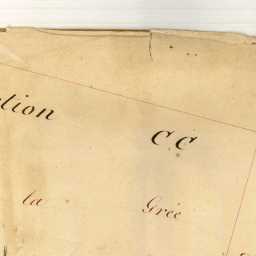 ction CC
la Grée